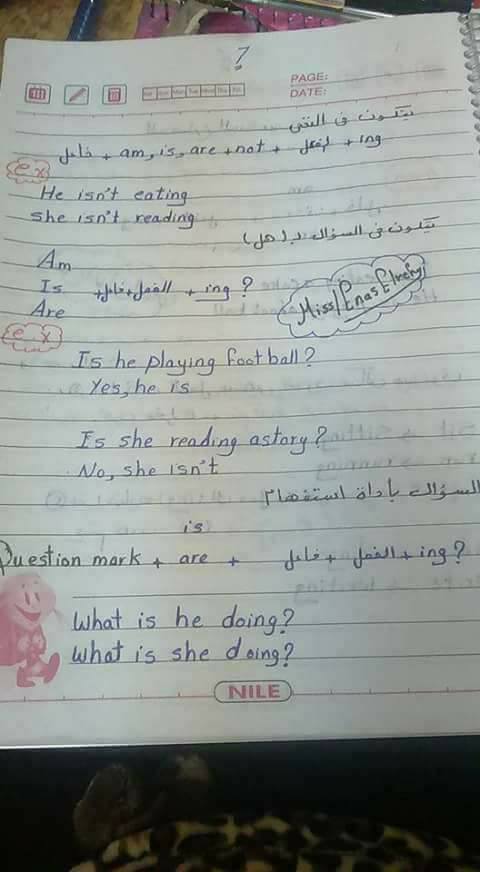 7
PAGE:
DATE:
يتكون فى النفى
فاعل + am, is, are + not + الفعل + ing
ex
He isn't eating
She isn't reading
يتكون فى السؤال بـ (هل)
Am
Is +فاعل+الفعل + ing ?
Are
Miss/Enas Elrefy
ex
Is he playing football?
Yes, he is
Is she reading astory?
No, she isn't
السؤال بأداة استفهام
is
Question mark + are + فاعل + الفعل + ing ?
What is he doing?
What is she doing?
NILE